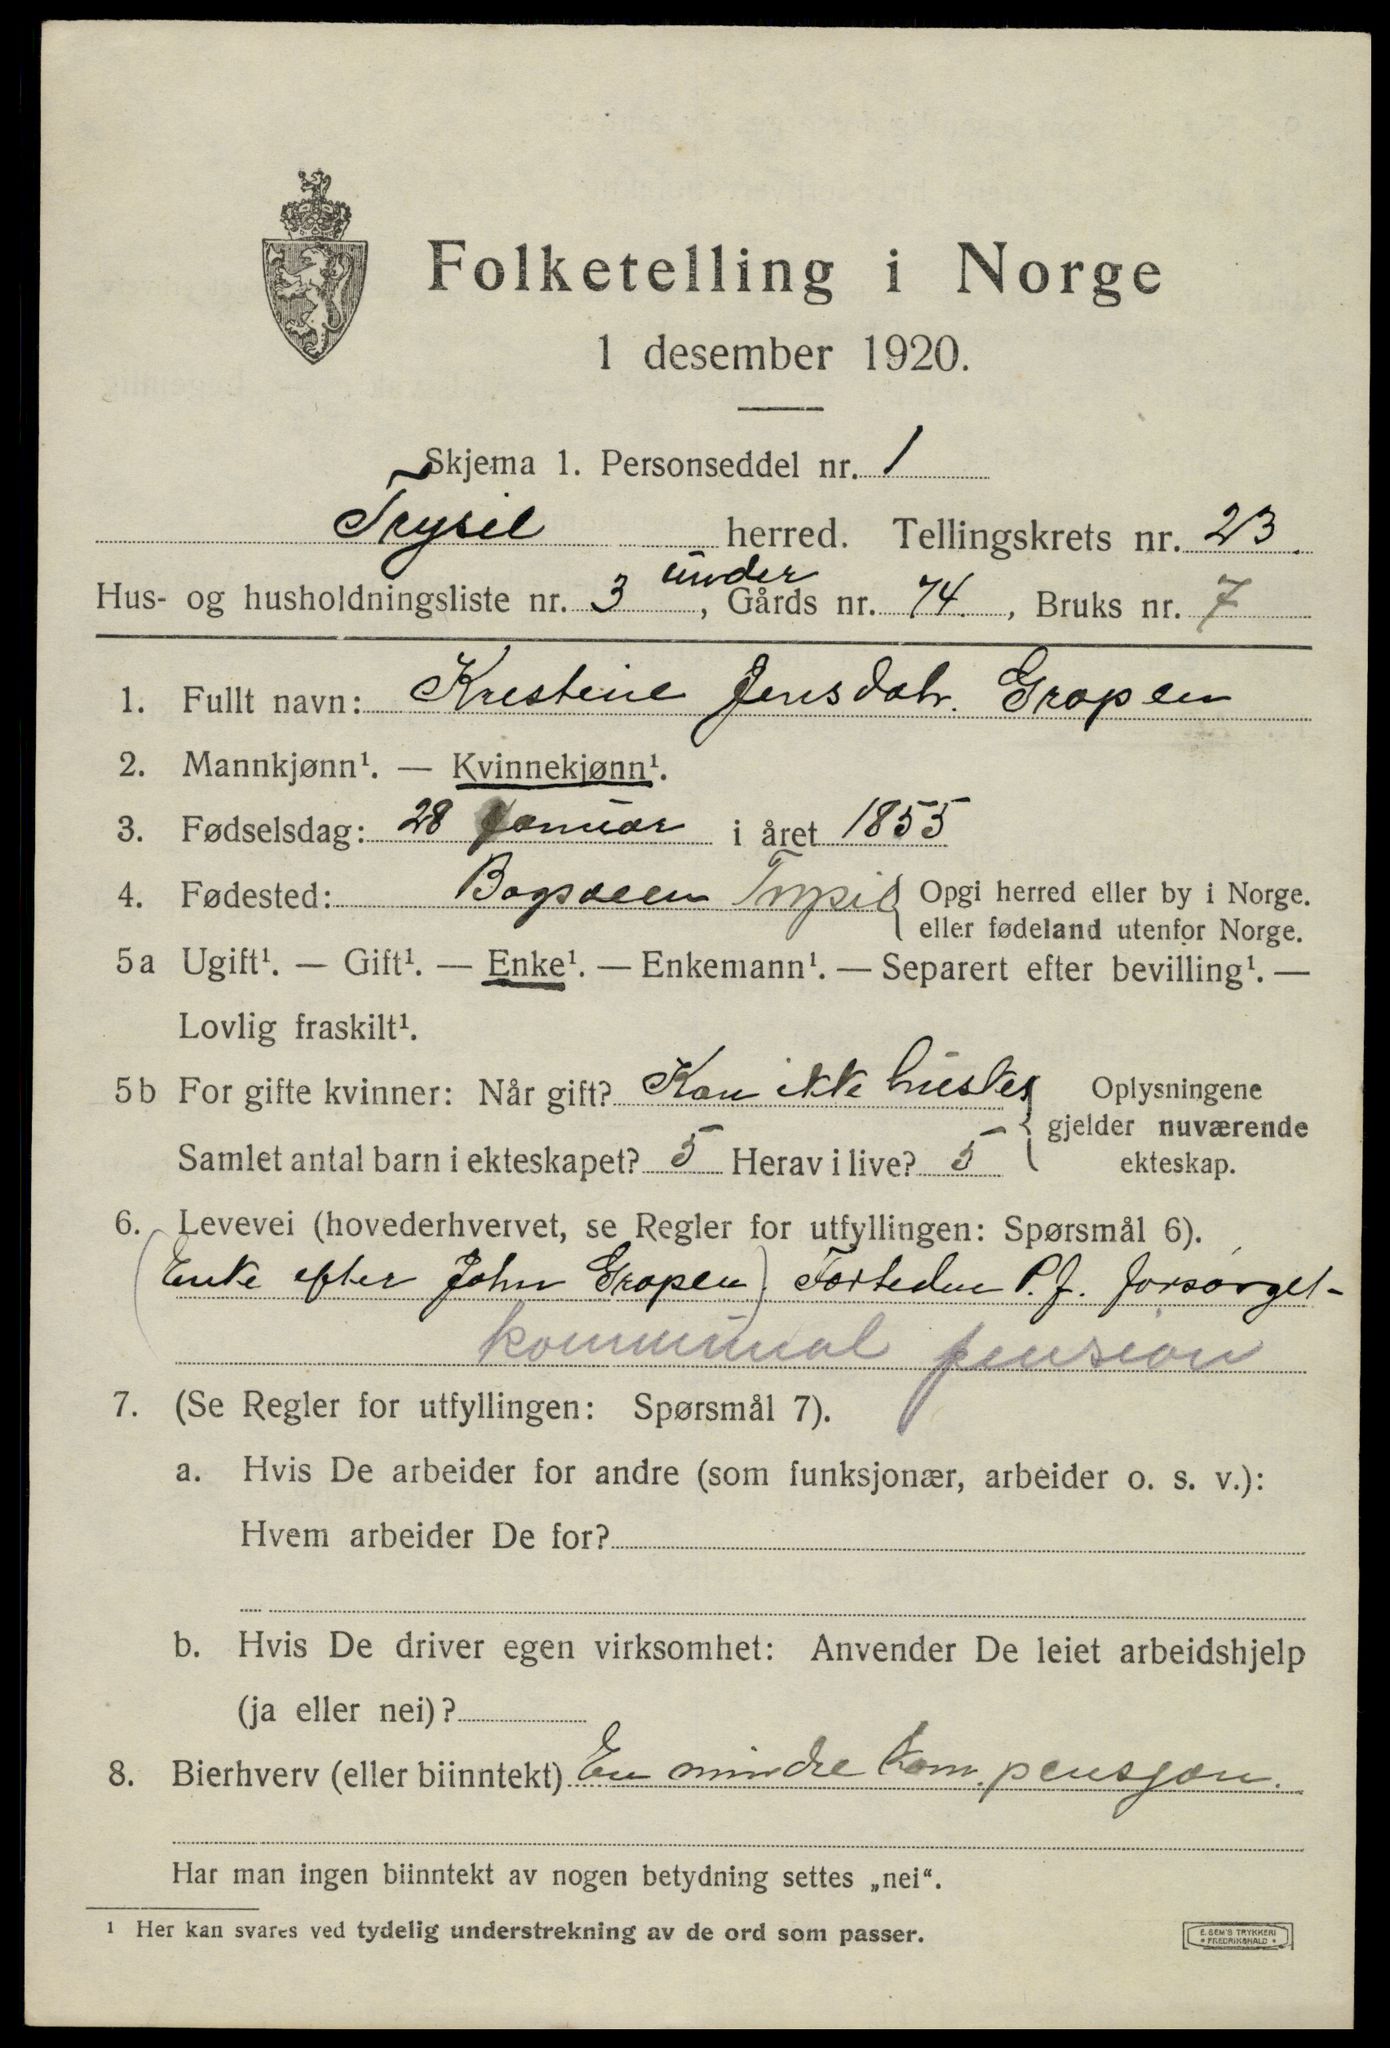 Folketelling i Norge
1 desember 1920.
Skjema 1. Personseddel nr. 1
Trysil herred. Tellingskrets nr. 23.
under
Hus- og husholdningsliste nr. 3, Gårds nr. 74., Bruks nr. 7
1. Fullt navn: Kristine Jensdatr. Gropen
2. Mannkjønn¹. — Kvinnekjønn¹.
3. Fødselsdag: 28 Januar i året 1855
4. Fødested: Trysil { Opgi herred eller by i Norge.
eller fødeland utenfor Norge.
5a Ugift¹. — Gift¹. — Enke¹. — Enkemann¹. — Separert efter bevilling¹. —
Lovlig fraskilt¹.
5b For gifte kvinner: Når gift? Kan ikke huskes { Oplysningene
gjelder nuværende
Samlet antal barn i ekteskapet? 5 Herav i live? 5 ekteskap.
6. Levevei (hovederhvervet, se Regler for utfyllingen: Spørsmål 6).
(Enke efter John Gropen) P. J. forsørget-
kommunal pension
7. (Se Regler for utfyllingen: Spørsmål 7).
a. Hvis De arbeider for andre (som funksjonær, arbeider o. s. v.):
Hvem arbeider De for?
b. Hvis De driver egen virksomhet: Anvender De leiet arbeidshjelp
(ja eller nei)?
8. Bierhverv (eller biinntekt) En mindre kom. pensjon.
Har man ingen biinntekt av nogen betydning settes „nei“.
¹ Her kan svares ved tydelig understrekning av de ord som passer.
E. SEM'S TRYKKERI
• FREDRIKSHALD •